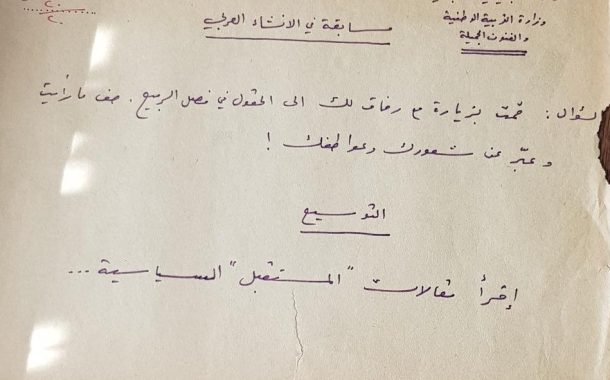 وزارة التربية الوطنية
والفنون الجميلة
٢٠
٢٠
مسابقة في الانشاء العربي
السؤال : قمت بزيارة مع رفاق لك الى الحقول في فصل الربيع . صف ما رأيت
وعبّر عن شعورك وعواطفك !
التوسيع
إقرأ مقالات "المستقبل" السياسية ...